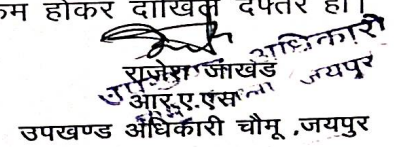 कम होकर दाखिल दफ्तर हो।
राजेश जाखड
आर.ए.एस
उपखण्ड अधिकारी चौमू ,जयपुर
अधिकारी
जयपुर